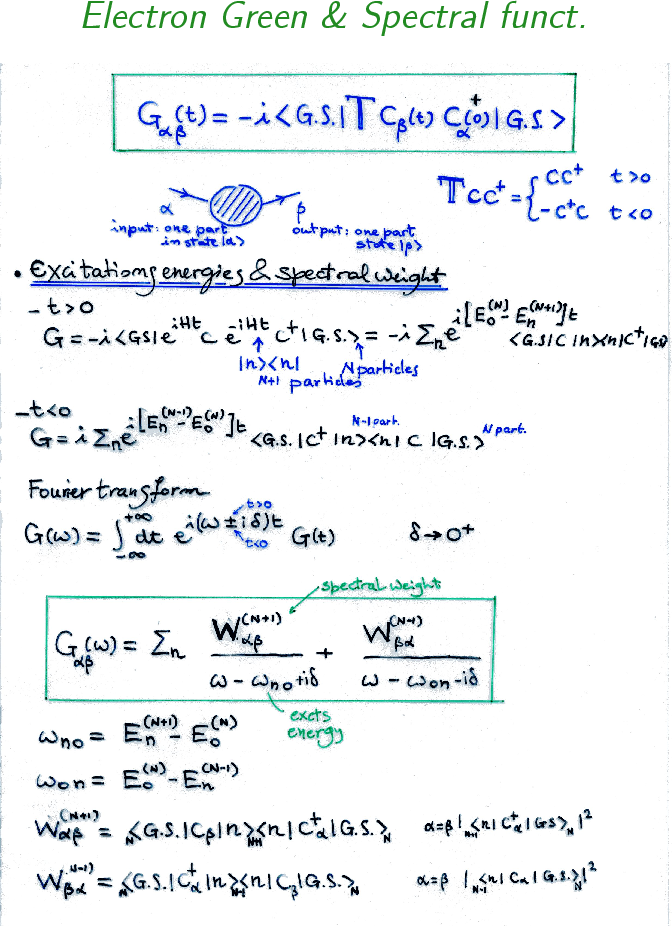 Electron Green & Spectral funct.
G_αβ(t) = -i <G.S.| T C_β(t) C_α^+(0) | G.S. >
T CC^+ = { CC^+ t>0
-C^+C t<0
α β
input: one part in state |α>
output: one part state |β>
• Excitations energies & spectral weight
- t>0
G = -i <GS| e^{iHt} C e^{-iHt} C^+ | G.S.> = -i Σ_n e^{i[E_0^(N) - E_n^(N+1)]t} <G.S| C |n><n| C^+ |GS>
|n><n|
N+1 particles
N particles
- t<0
G = i Σ_n e^{i[E_n^(N-1) - E_0^(N)]t} <G.S. | C^+ |n><n| C |G.S.>
N-1 part.
N part.
Fourier transform
G(ω) = ∫_{-∞}^{+∞} dt e^{i(ω ± iδ)t} G(t) δ → 0^+
t>0
t<0
spectral weight
G_αβ(ω) = Σ_n W_αβ^(N+1) / (ω - ω_no + iδ) + W_βα^(N-1) / (ω - ω_on - iδ)
excts energy
ω_no = E_n^(N+1) - E_0^(N)
ω_on = E_0^(N) - E_n^(N-1)
W_αβ^(N+1) = _N<G.S.| C_β |n>_{N+1}<n| C_α^+ | G.S.>_N α=β |_{N+1}<n| C_α^+ | GS>_N|^2
W_βα^(N-1) = _N<G.S.| C_α^+ |n>_{N-1}<n| C_β |G.S.>_N α=β |_{N-1}<n| C_α | G.S.>_N|^2